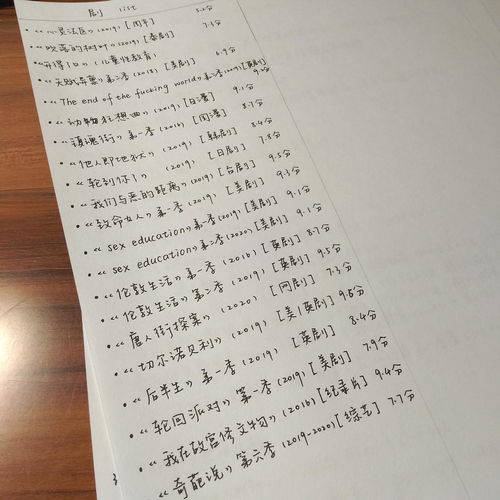 剧 list
·《心灵法医》(2019) [网剧] 8.2分
·《坠落的树叶》(2019) [泰剧] 7.3分
·《开得了口》(儿童性教育)
·《天赋异禀》第二季(2018) [美剧] 6.9分
·《The end of the fucking world》第二季(2019) [英剧] 9.2分
·《动物狂想曲》(2019) [日漫] 9.1分
·《镇魂街》第一季(2016) [国漫] 8.7分
·《他人即地狱》(2019) [韩剧] 8.4分
·《轮到你了》(2019) [日剧] 7.8分
·《我们与恶的距离》(2019) [台剧] 9.5分
·《致命女人》第一季(2019) [美剧] 9.3分
·《sex education》第一季(2019) [美剧] 9.1分
·《sex education》第二季(2020) [美剧] 9.1分
·《伦敦生活》第一季(2016) [英剧] 8.7分
·《伦敦生活》第二季(2019) [英剧] 9.5分
·《唐人街探案》(2020) [网剧] 7.3分
·《切尔诺贝利》(2019) [美|英剧] 9.6分
·《后半生》第一季(2019) [英剧] 8.4分
·《轮回派对》第一季(2019) [美剧] 7.9分
·《我在故宫修文物》(2016) [纪录片] 9.4分
·《奇葩说》第六季(2019-2020) [综艺] 7.7分